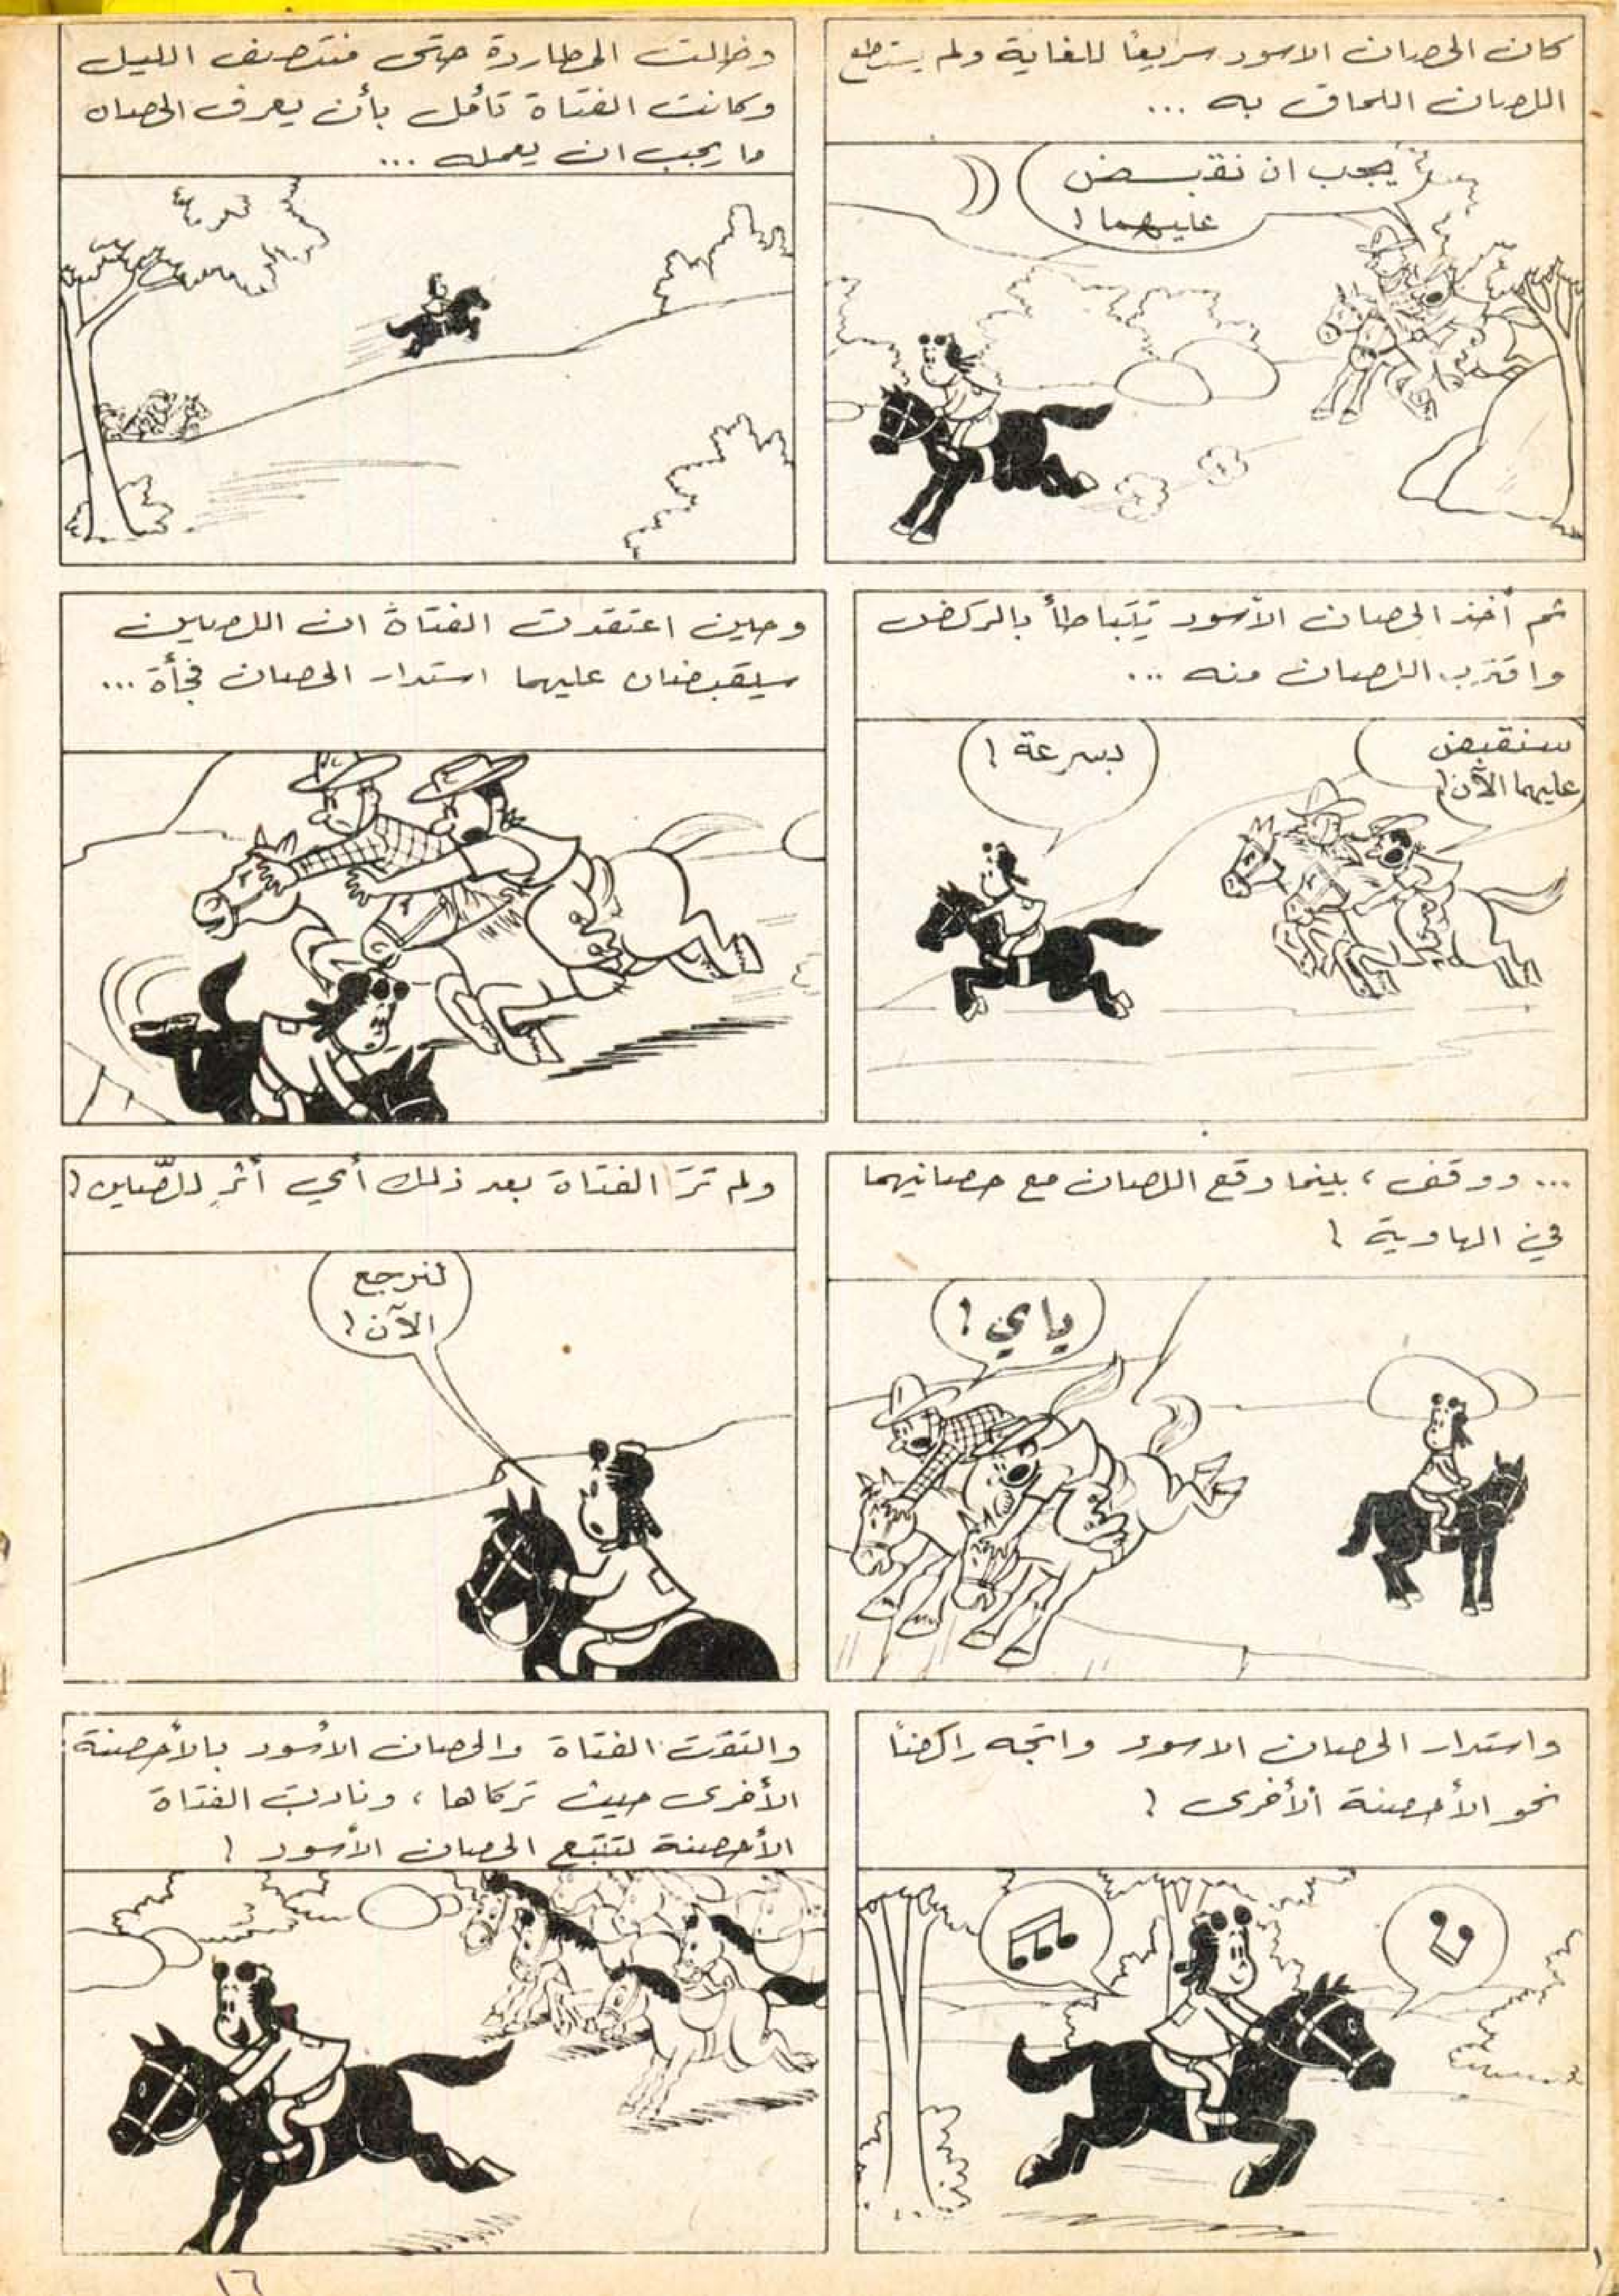 كان الحصان الاسود سريعاً للغاية ولم يستطع
اللصان اللحاق به ...
يجب ان نقبض
عليهما !
وظلت المطاردة حتى منتصف الليل
وكانت الفتاة تأمل بأن يعرف الحصان
ما يجب ان يعمله ...
ثم أخذ الحصان الأسود يتباطأ بالركض
واقترب اللصان منه ...
سنقبض
عليهما الآن !
بسرعة !
وحين اعتقدت الفتاة ان اللصين
سيقبضان عليهما استدار الحصان فجأة ...
... ووقف ، بينما وقع اللصان مع حصانيهما
في الهاوية !
ياي !
ولم ترَ الفتاة بعد ذلك أي أثرٍ للصّين !
لنرجع
الآن !
واستدار الحصان الاسود واتجه راكضاً
نحو الأحصنة الأخرى !
والتقت الفتاة والحصان الأسود بالأحصنة
الأخرى حيث تركاها ، ونادت الفتاة
الأحصنة لتتبع الحصان الأسود !
١٦